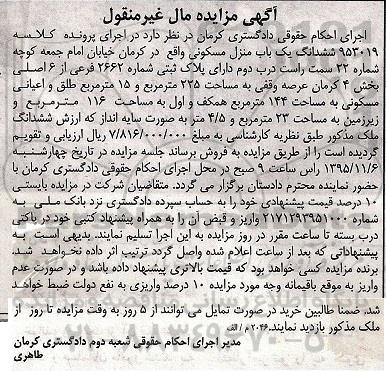 آگهی مزایده مال غیرمنقول
اجرای احکام حقوقی دادگستری کرمان در نظر دارد در اجرای پرونده کلاسه
۹۵۳۰۱۹ ششدانگ یک باب منزل مسکونی واقع در کرمان خیابان امام جمعه کوچه
شماره ۲۲ سمت راست درب دوم دارای پلاک ثبتی شماره ۲۶۶۲ فرعی از ۶ اصلی
بخش ۴ کرمان عرصه وقفی به مساحت ۲۳۵ مترمربع و ۱۵ مترمربع طلق و اعیانی
مسکونی به مساحت ۱۴۴ مترمربع همکف و اول به مساحت ۱۱۶ مترمربع و
زیرزمین به مساحت ۲۳ مترمربع و ۴/۵ متر به صورت سایه انداز که ارزش ششدانگ
ملک مذکور طبق نظریه کارشناسی به مبلغ ۷/۸۱۶/۰۰۰/۰۰۰ ریال ارزیابی و تقویم
گردیده است را از طریق مزایده به فروش برساند جلسه مزایده در تاریخ چهارشنبه
۱۳۹۵/۱۱/۶ راس ساعت ۹ صبح در محل اجرای احکام حقوقی دادگستری کرمان با
حضور نماینده محترم دادستان برگزار می گردد. متقاضیان شرکت در مزایده بایستی
۱۰ درصد قیمت پیشنهادی خود را به حساب سپرده دادگستری نزد بانک ملی به
شماره ۲۱۷۱۲۹۳۹۵۱۰۰۰ واریز و قبض آن را به همراه پیشنهاد کتبی خود در پاکتی
درب بسته تا ساعت مقرر در روز مزایده به این اجرا تسلیم نمایند. بدیهی است به
پیشنهاداتی که بعد از ساعت اعلام شده واصل گردد ترتیب اثر داده نخواهد شد.
برنده مزایده کسی خواهد بود که قیمت بالاتری پیشنهاد داده باشد و در صورت عدم
واریز به موقع باقیمانده وجه مورد مزایده ۱۰ درصد واریزی به نفع دولت ضبط خواهد
شد. ضمنا طالبین خرید در صورت تمایل می توانند از ۵ روز به وقت مزایده تا روز از
ملک مذکور بازدید نمایند. ۲۰۴۶ م/الف
مدیر اجرای احکام حقوقی شعبه دوم دادگستری کرمان
طاهری
۰۲۱-۸۸۳۴۹۶۷۰-۵